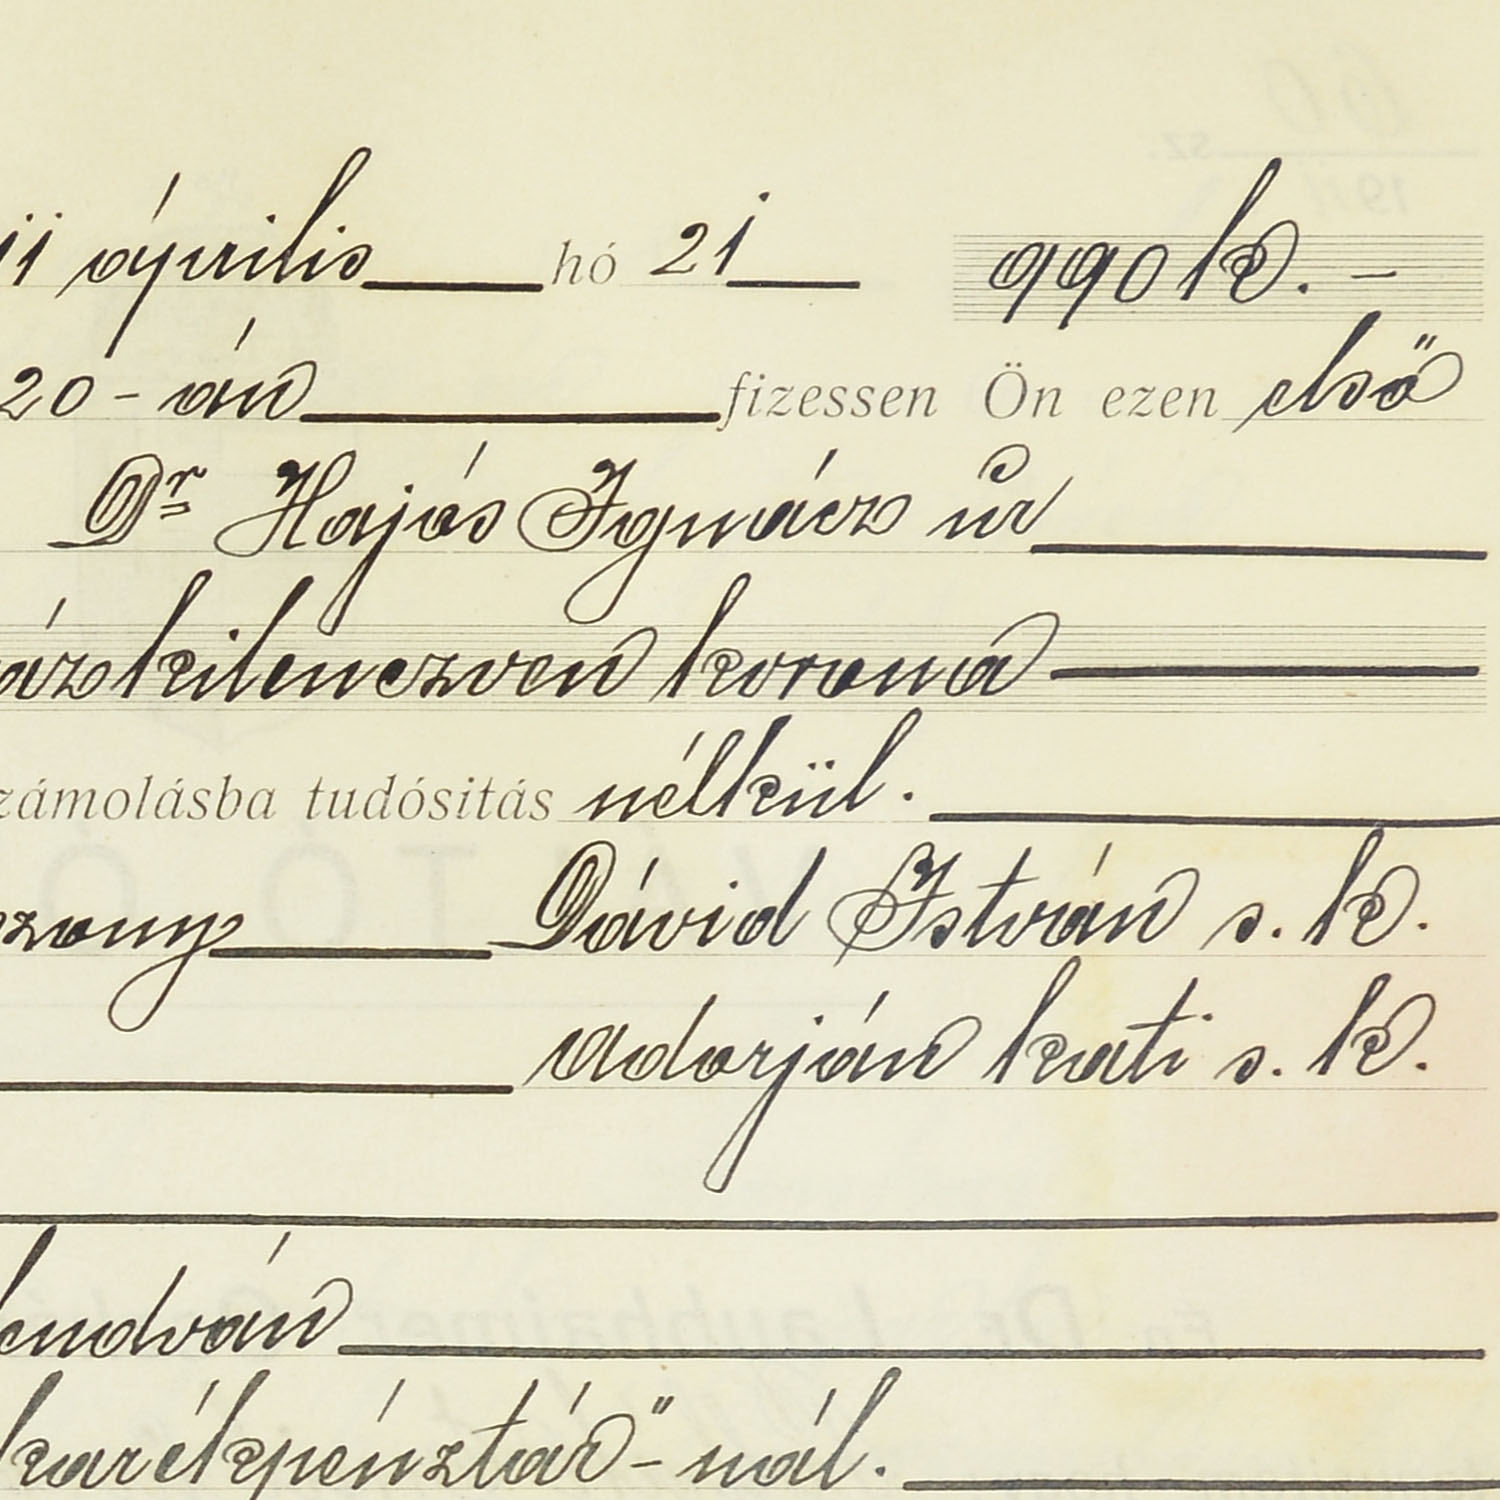 11 április hó 21 990 k. –
20 - án fizessen Ön ezen első
Dr Hajós Ignácz úr
áz kilenczven korona
zámolásba tudósitás nélkül.
zony Dávid István s. k.
Adorján Kati s. k.
endván
karékpénztár" - nál.